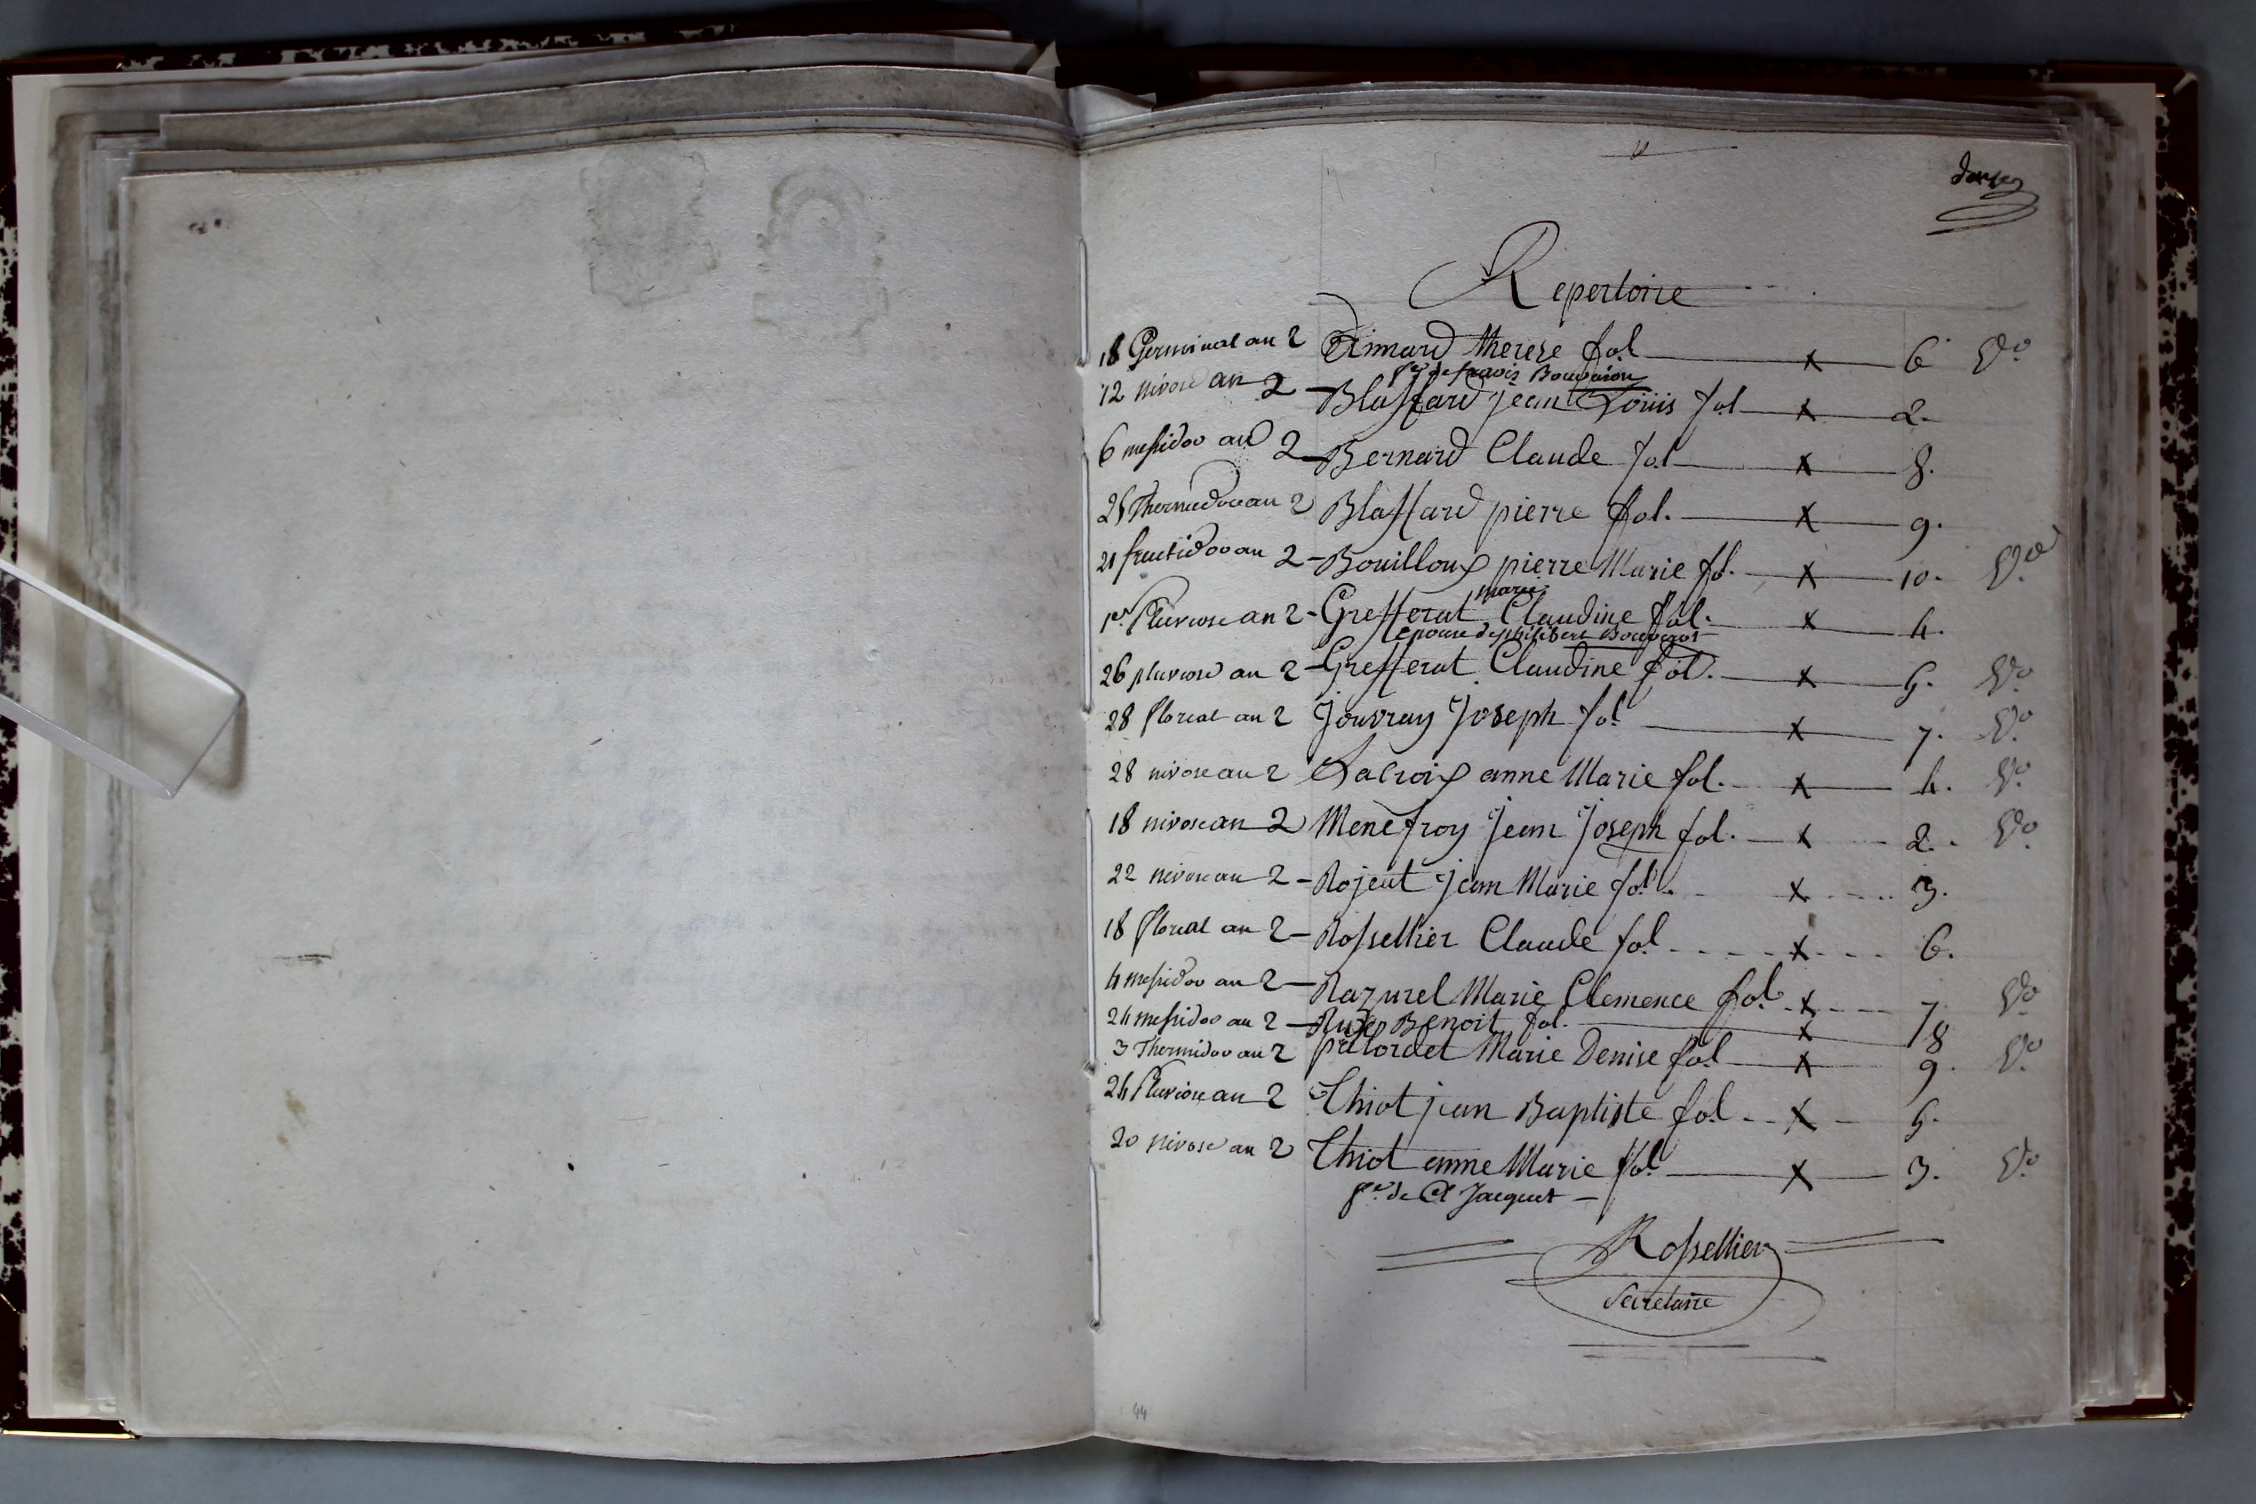 douze
Repertoire
18 Germinal an 2 Aimard therese fol x 6. Vo.
fe. de francois Bouvairon
12 nivose an 2 - Blassard jean Louis fol x 2.
6 messidor an 2 - Bernard Claude fol x 8.
25 Thermidor an 2 Blassard pierre fol. x 9.
21 fructidor an 2 - Bouilloux pierre Marie fol. x 10. Vo.
marie
1er. Pluviose an 2 - Grefferat Claudine fol. x 4.
epouse de philibert Bouveirot
26 pluviose an 2 - Grefferat Claudine fol. x 5. Vo.
28 floreal an 2 Jouvray Joseph fol x 7. Vo.
28 nivose an 2 Lacroix anne Marie fol. x 4. Vo.
18 nivose an 2 Menefroy Jean Joseph fol. x 2. Vo.
22 nivose an 2 - Rojeat jean Marie fol. x 3.
18 floreal an 2 - Rossellier Claude fol x 6.
4 messidor an 2 - Razurel Marie Clemence fol. x 7 Vo.
24 messidor an 2 - Benoit fol. x 8
3 Thermidor an 2 Marie Denise fol x 9. Vo.
24 Pluviose an 2 Thiot jean Baptiste fol x 5.
20 nivose an 2 Thiot anne Marie fol. x 3. Vo.
fe. de Cl Jacquet -
Rossellier
Secretaire
44